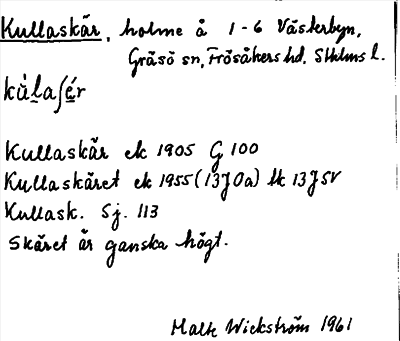 Kullaskär, holme å 1-6 Västerbyn,
Gräsö sn, Frösåkers hd. Sthlms l.
kùlaʃér
Kullaskär ek 1905 G 100
Kullaskäret ek 1955 (13J0a) tk 13J SV
Kullask. Sj. 113
Skäret är ganska högt.
Malte Wickström 1961